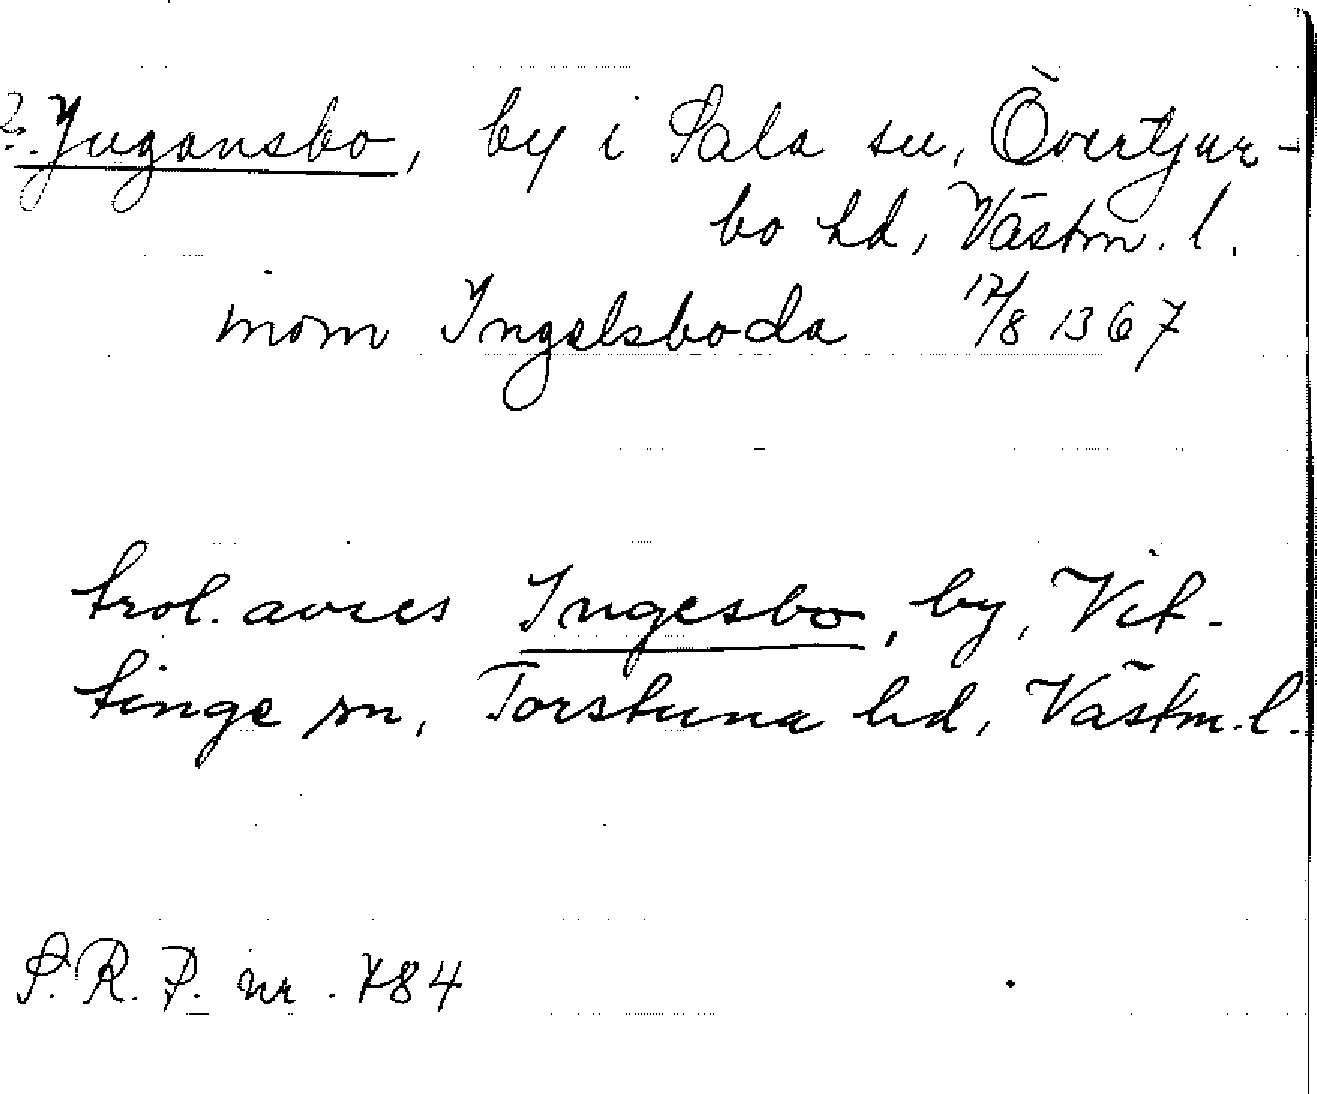 ?. Jugansbo, by i Sala sn, Övertjur-
bo hd, Västm. l.
inom Ingelsboda 17/8 1367
trol. avses Ingesbo, by, Vit-
tinge sn, Torstuna hd, Västm. l.
S.R.P. nr. 784